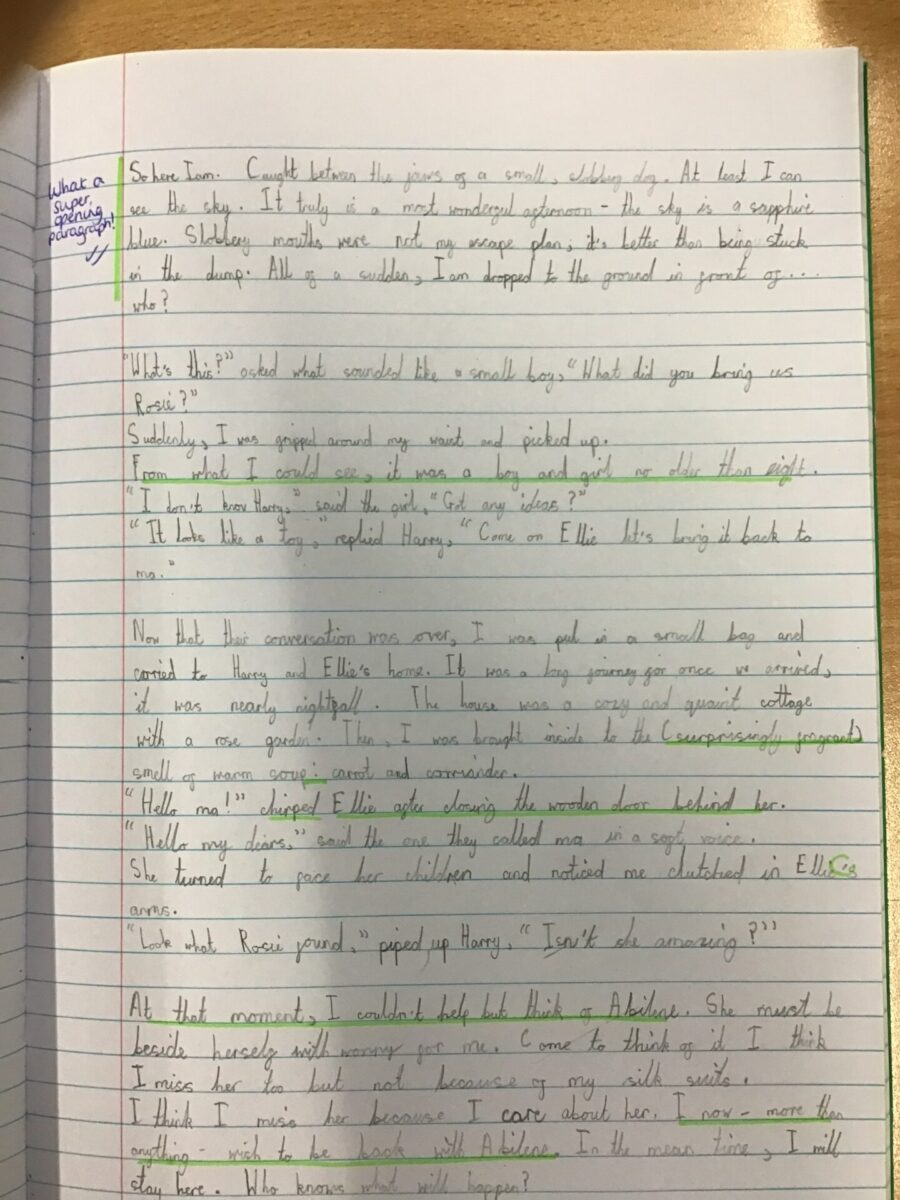 What a
super
opening
paragraph!
So here I am. Caught between the jaws of a small, slobbery dog. At least I can
see the sky. It truly is a most wonderful afternoon - the sky is a sapphire
blue. Slobbery mouths were not my escape plan; it's better than being stuck
in the dump. All of a sudden, I am dropped to the ground in front of....
who?
"What's this?" asked what sounded like a small boy, "What did you bring us
Rosie?"
Suddenly, I was gripped around my waist and picked up.
From what I could see, it was a boy and girl no older than eight.
"I don't know Harry," said the girl, "Got any ideas?"
"It looks like a toy," replied Harry, "Come on Ellie let's bring it back to
ma."
Now that their conversation was over, I was put in a small bag and
carried to Harry and Ellie's home. It was a long journey for once we arrived,
it was nearly nightfall. The house was a cozy and quaint cottage
with a rose garden. Then, I was brought inside to the (surprisingly fragrant)
smell of warm soup: carrot and corriander.
"Hello ma!" chirped Ellie after closing the wooden door behind her.
"Hello my dears," said the one they called ma in a soft voice.
She turned to face her children and noticed me clutched in Ellie's
arms.
"Look what Rosie found," piped up Harry, "Isn't she amazing?"
At that moment, I couldn't help but think of Abilene. She must be
beside herself with worry for me. Come to think of it I think
I miss her too but not because of my silk suits.
I think I miss her because I care about her. I now - more than
anything - wish to be back with Abilene. In the mean time, I will
stay here. Who knows what will happen?